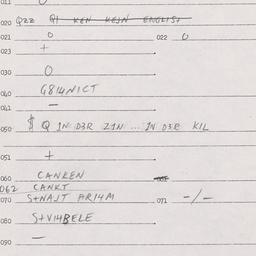 011
020 Q22 Q1 KEN KEJN ENGLIST
021 0 022 0
023 +
030 0
040 G814NICT
041 —
050 $ Q IN D3R Z1N ... IN D3R KIL
051 +
060 CANKEN
062 CANKT
070 S+NAJT AR14M 071 -/-
080 S+V14BELE
090 —